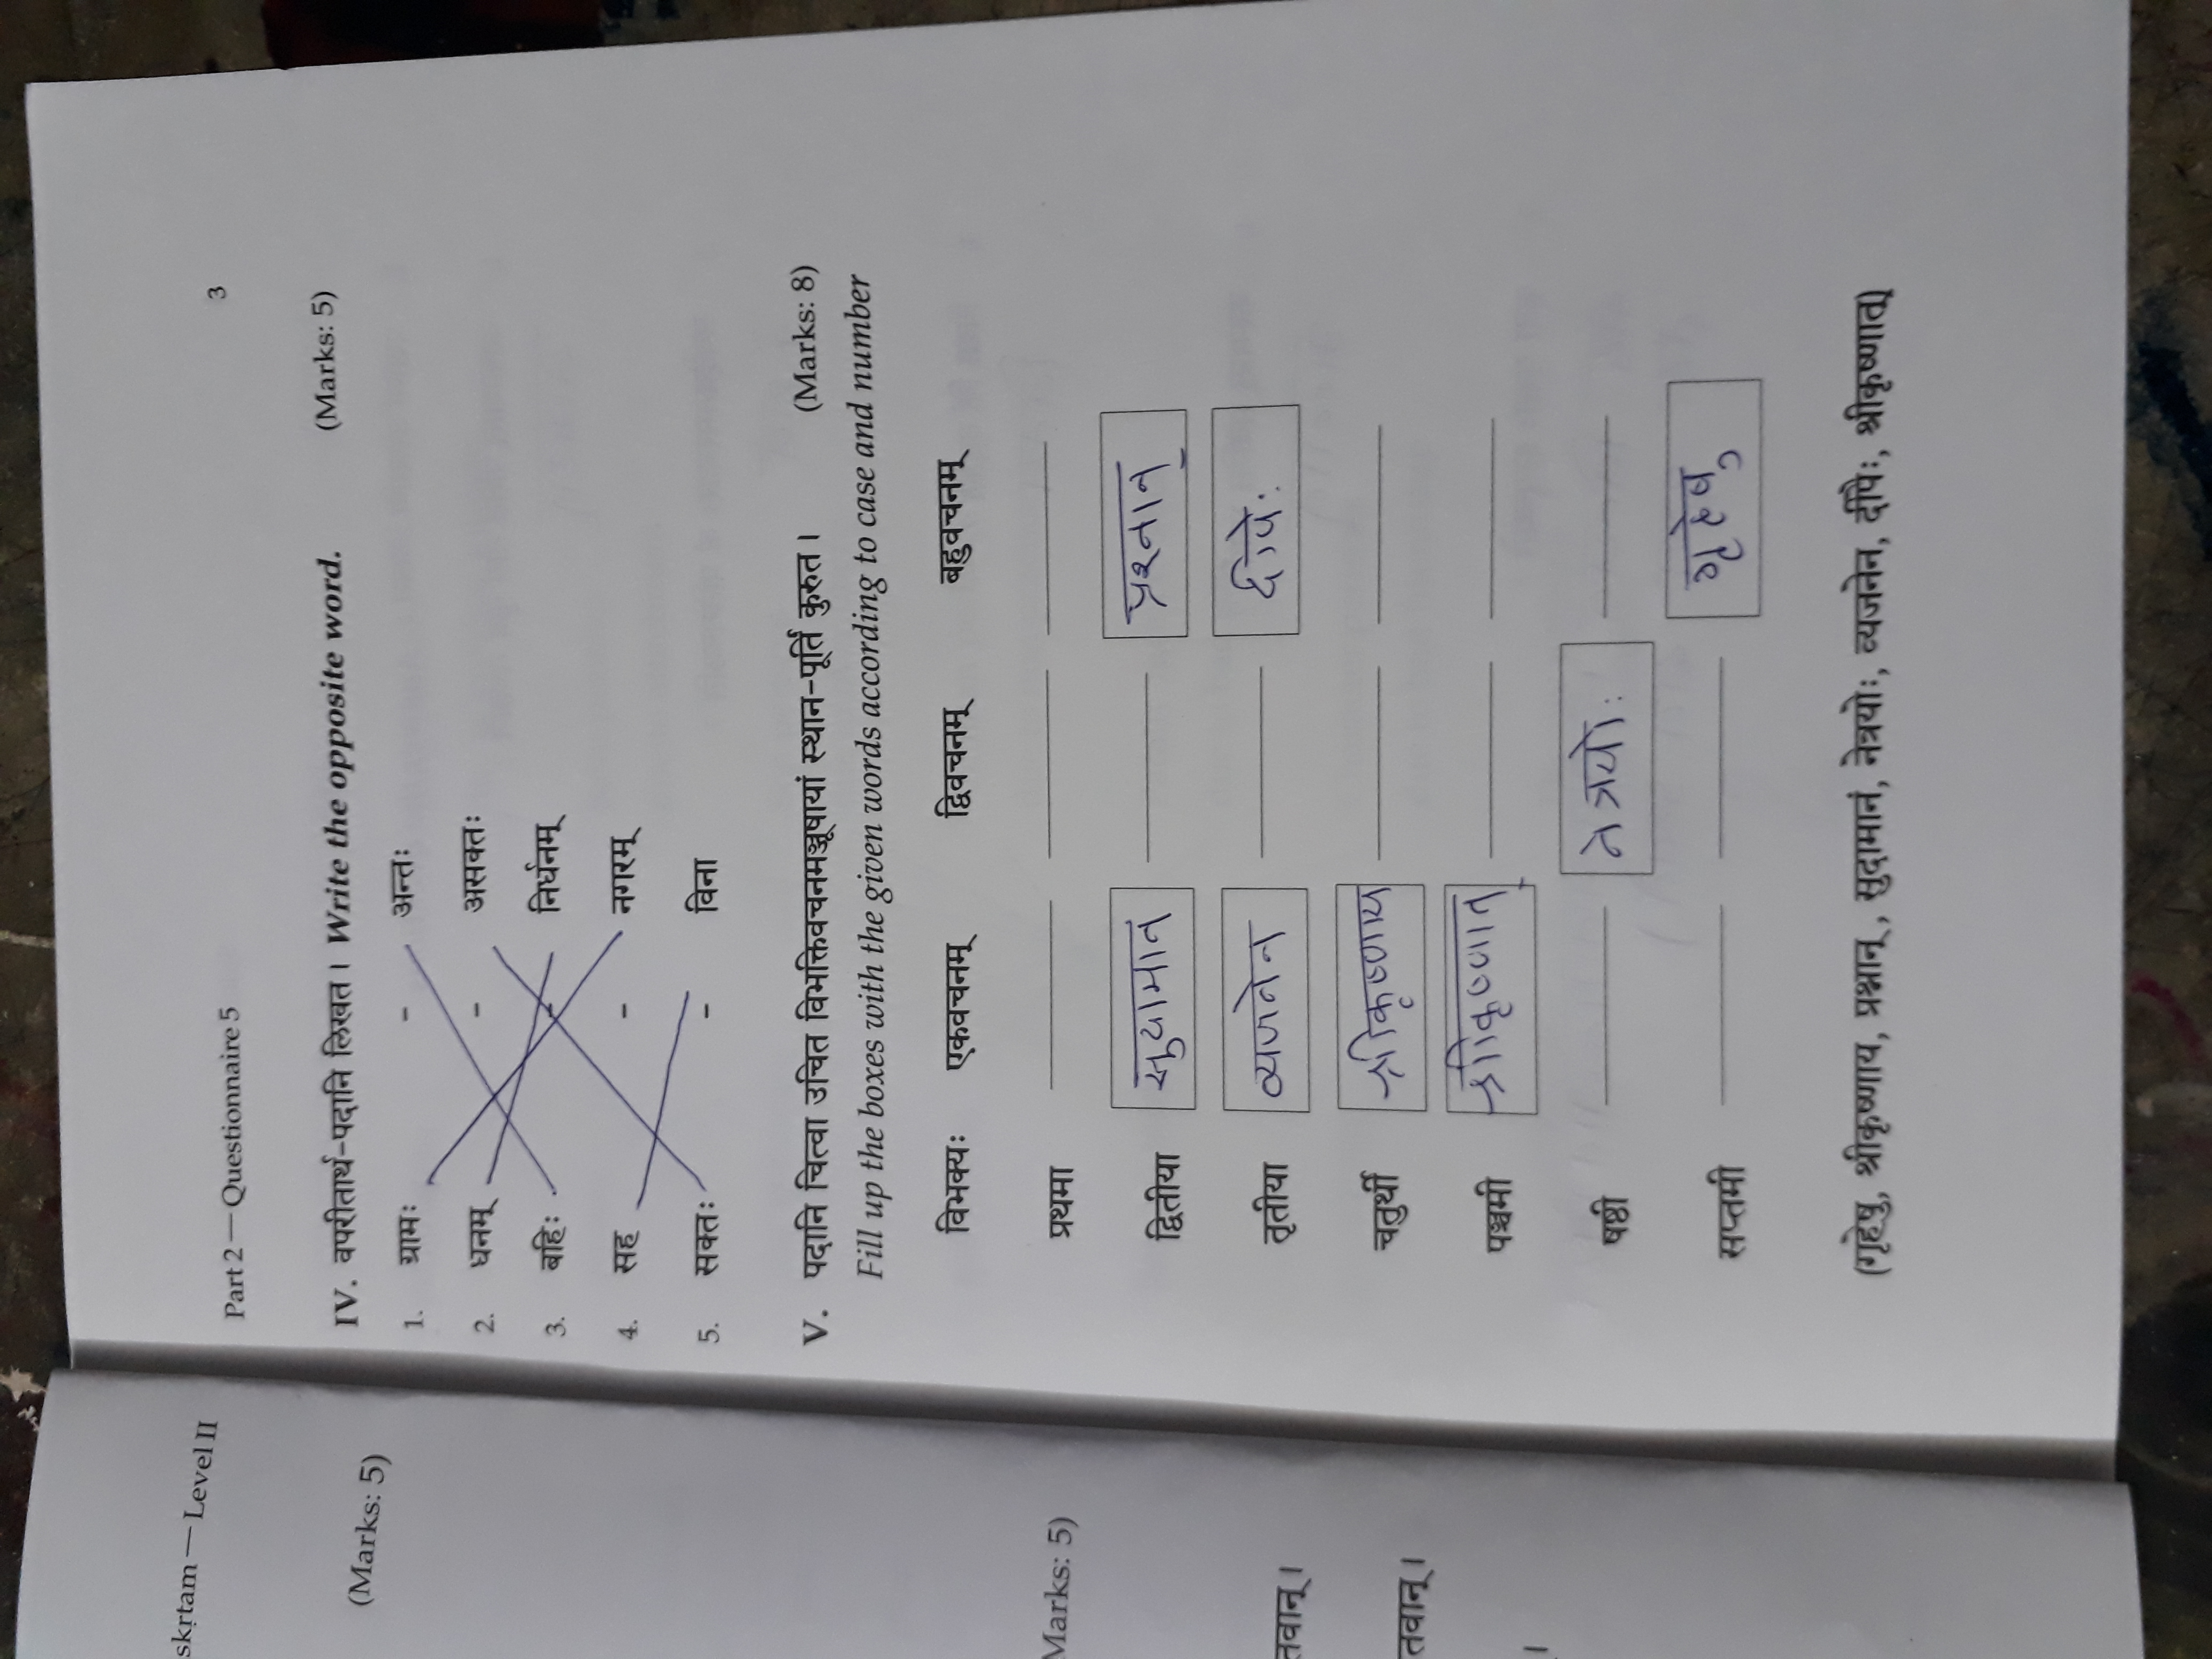 skṛtam — Level II
(Marks: 5)
Marks: 5)
तवान्।
तवान्।
।
Part 2 — Questionnaire 5 3
IV. वपरीतार्थ-पदानि लिखत। Write the opposite word. (Marks: 5)
1. ग्रामः - अन्तः
2. धनम् - असक्तः
3. बहिः - निर्धनम्
4. सह - नगरम्
5. सक्तः - विना
V. पदानि चित्वा उचित विभक्तिवचनमञ्जूषायां स्थान-पूर्तिं कुरुत। (Marks: 8)
Fill up the boxes with the given words according to case and number
विभक्यः एकवचनम् द्विवचनम् बहुवचनम्
प्रथमा
द्वितीया सुदामान प्रश्नान्
तृतीया व्यजनेन दीपे:
चतुर्थी श्रीकृष्णाय
पञ्चमी श्रीकृष्णात्
षष्ठी नेत्रयो:
सप्तमी गृहेषु
(गृहेषु, श्रीकृष्णाय, प्रश्नान्, सुदामानं, नेत्रयोः, व्यजनेन, दीपैः, श्रीकृष्णात्)